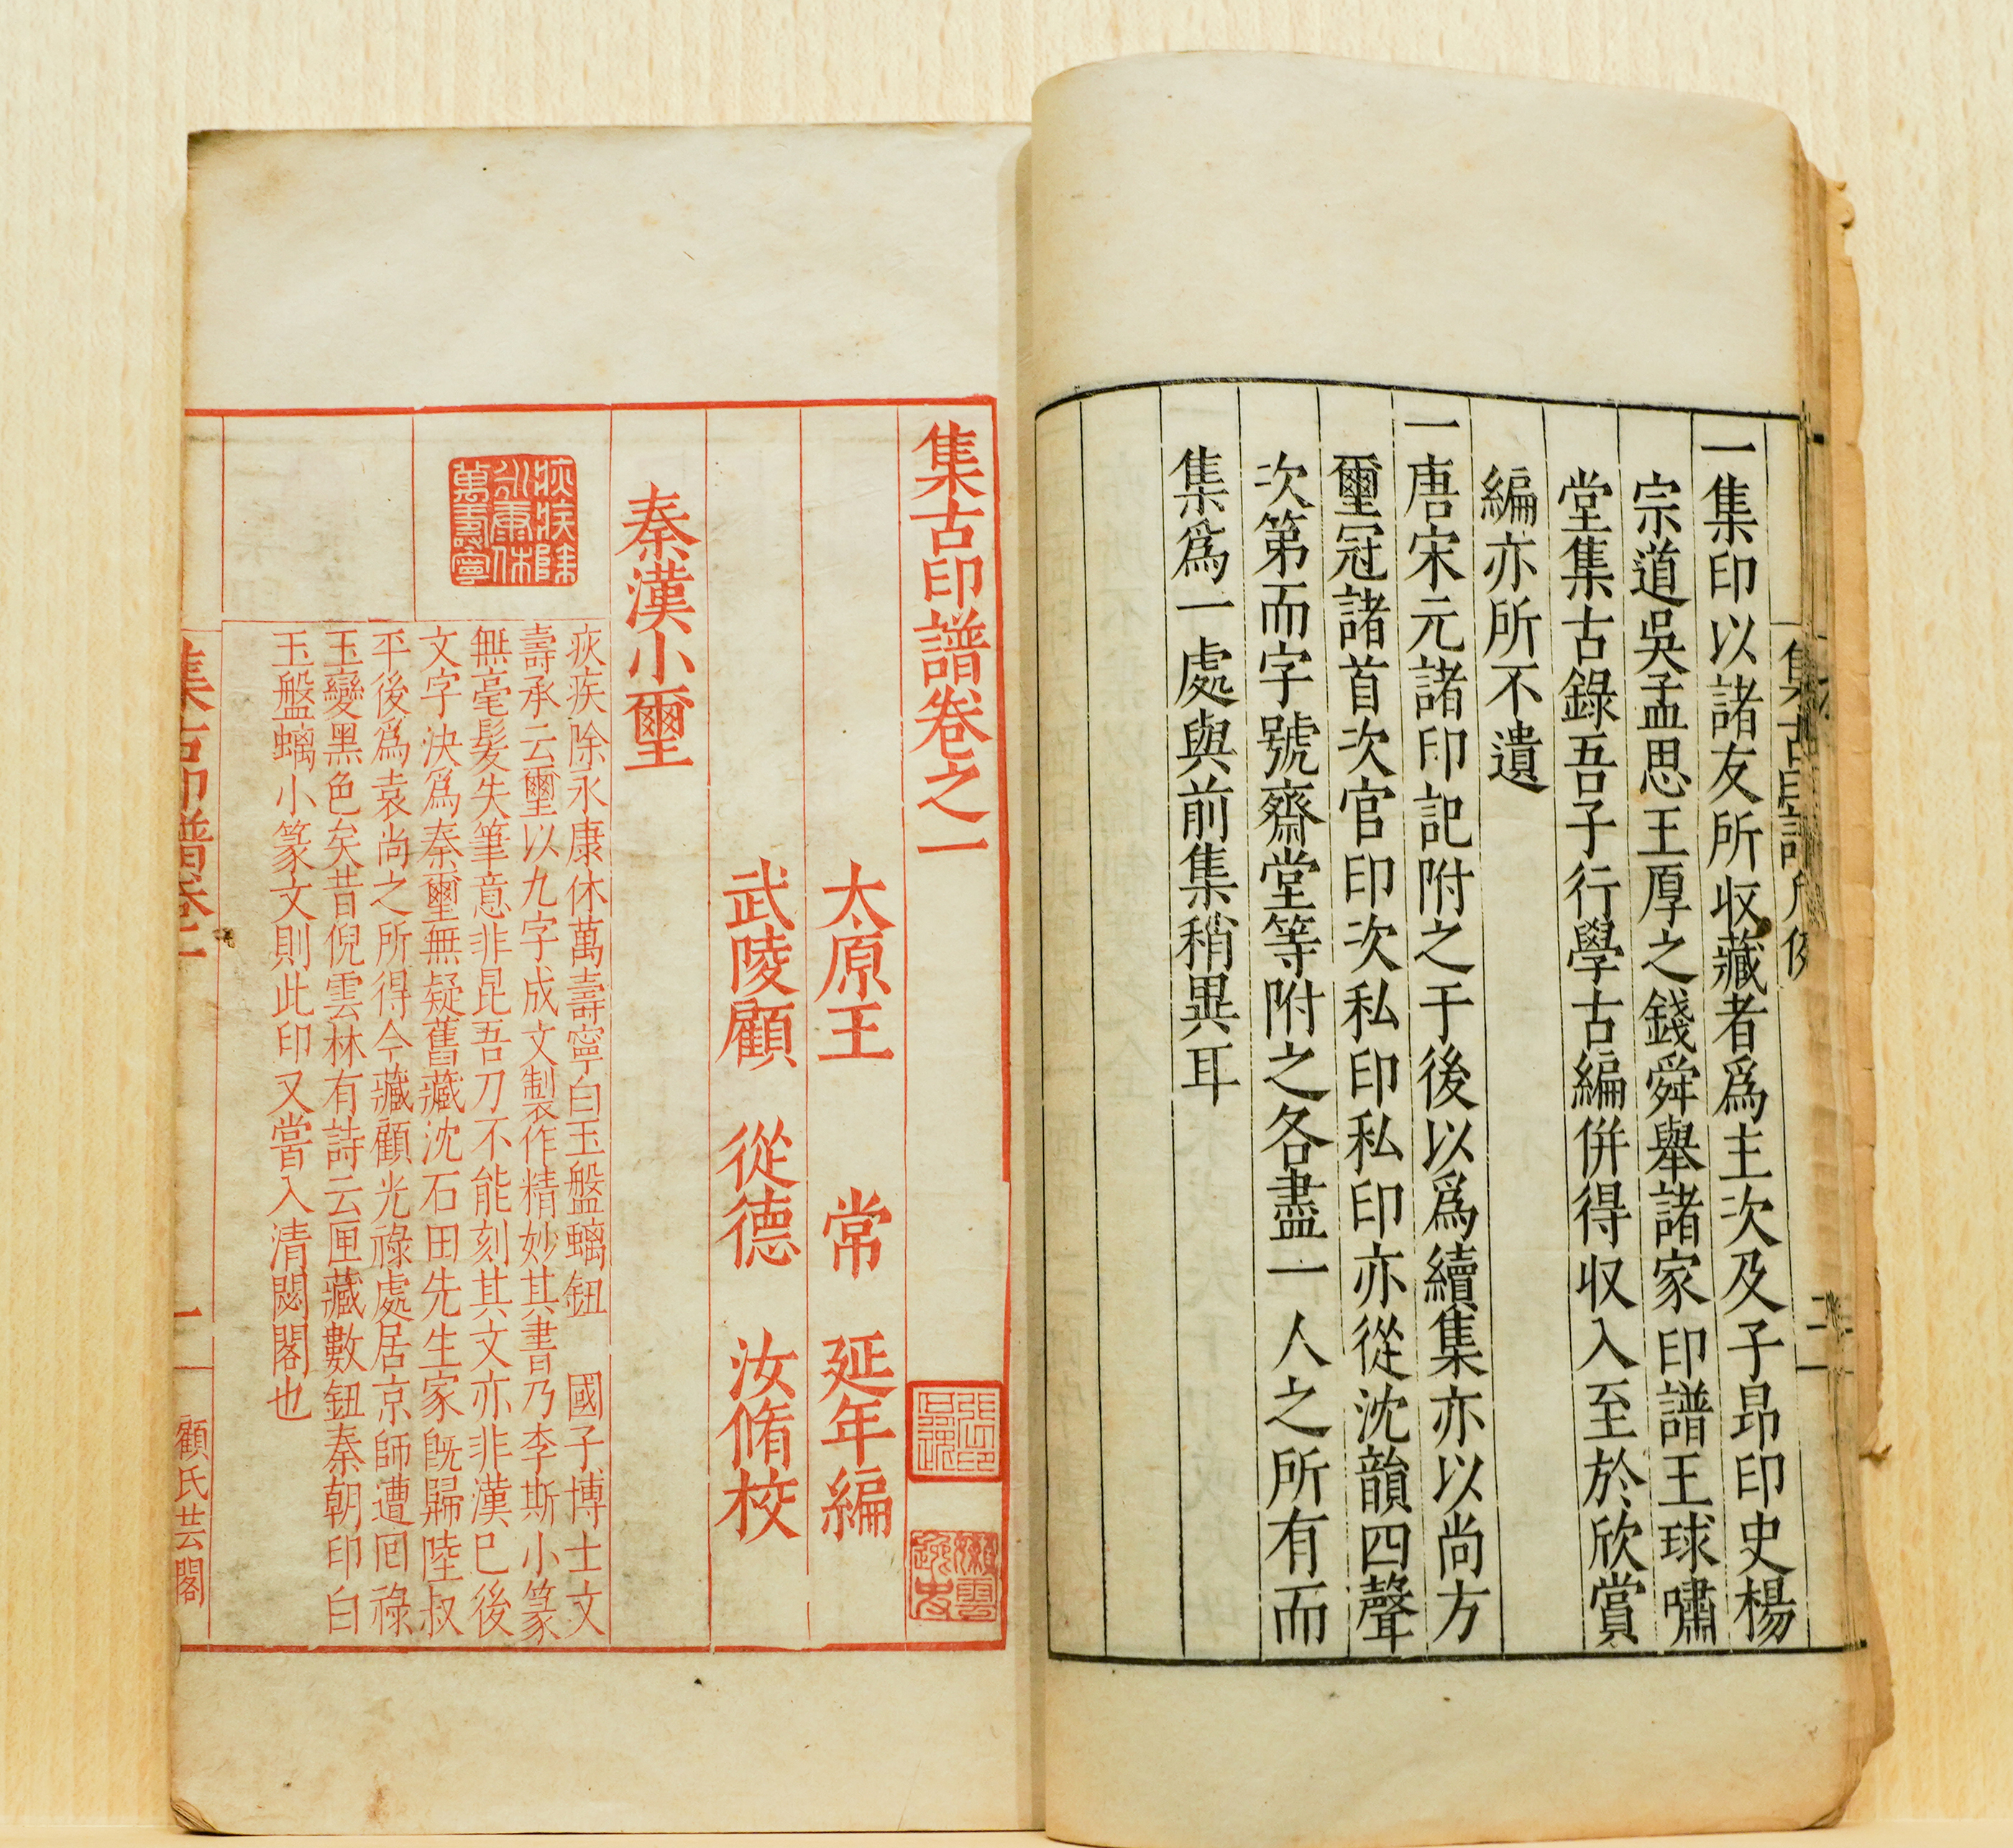 一集印以諸友所収藏者爲主次及子昂印史楊
宗道吳孟思王厚之錢舜舉諸家印譜王球嘯
堂集古錄吾子行學古編併得収入至於欣賞
編亦所不遺
一唐宋元諸印記附之于後以爲續集亦以尚方
璽冠諸首次官印次私印私印亦從沈韻四聲
次第而字號齋堂等附之各盡一人之所有而
集爲一處與前集稍異耳
集古印譜卷之一
太原王常延年編
武陵顧從德汝脩校
秦漢小璽
疢疾除永康休萬壽寧
疢疾除永康休萬壽寧白玉盤螭鈕 國子博士文
壽承云璽以九字成文製作精妙其書乃李斯小篆
無毫髮失筆意非昆吾刀不能刻其文亦非漢巳後
文字決爲秦璽無疑舊藏沈石田先生家旣歸陸叔
平後爲袁尚之所得今藏顧光祿處居京師遭回祿
玉變黑色矣昔倪雲林有詩云匣藏數鈕秦朝印白
玉盤螭小篆文則此印又嘗入清閟閣也
集古印譜卷一
一
顧氏芸閣